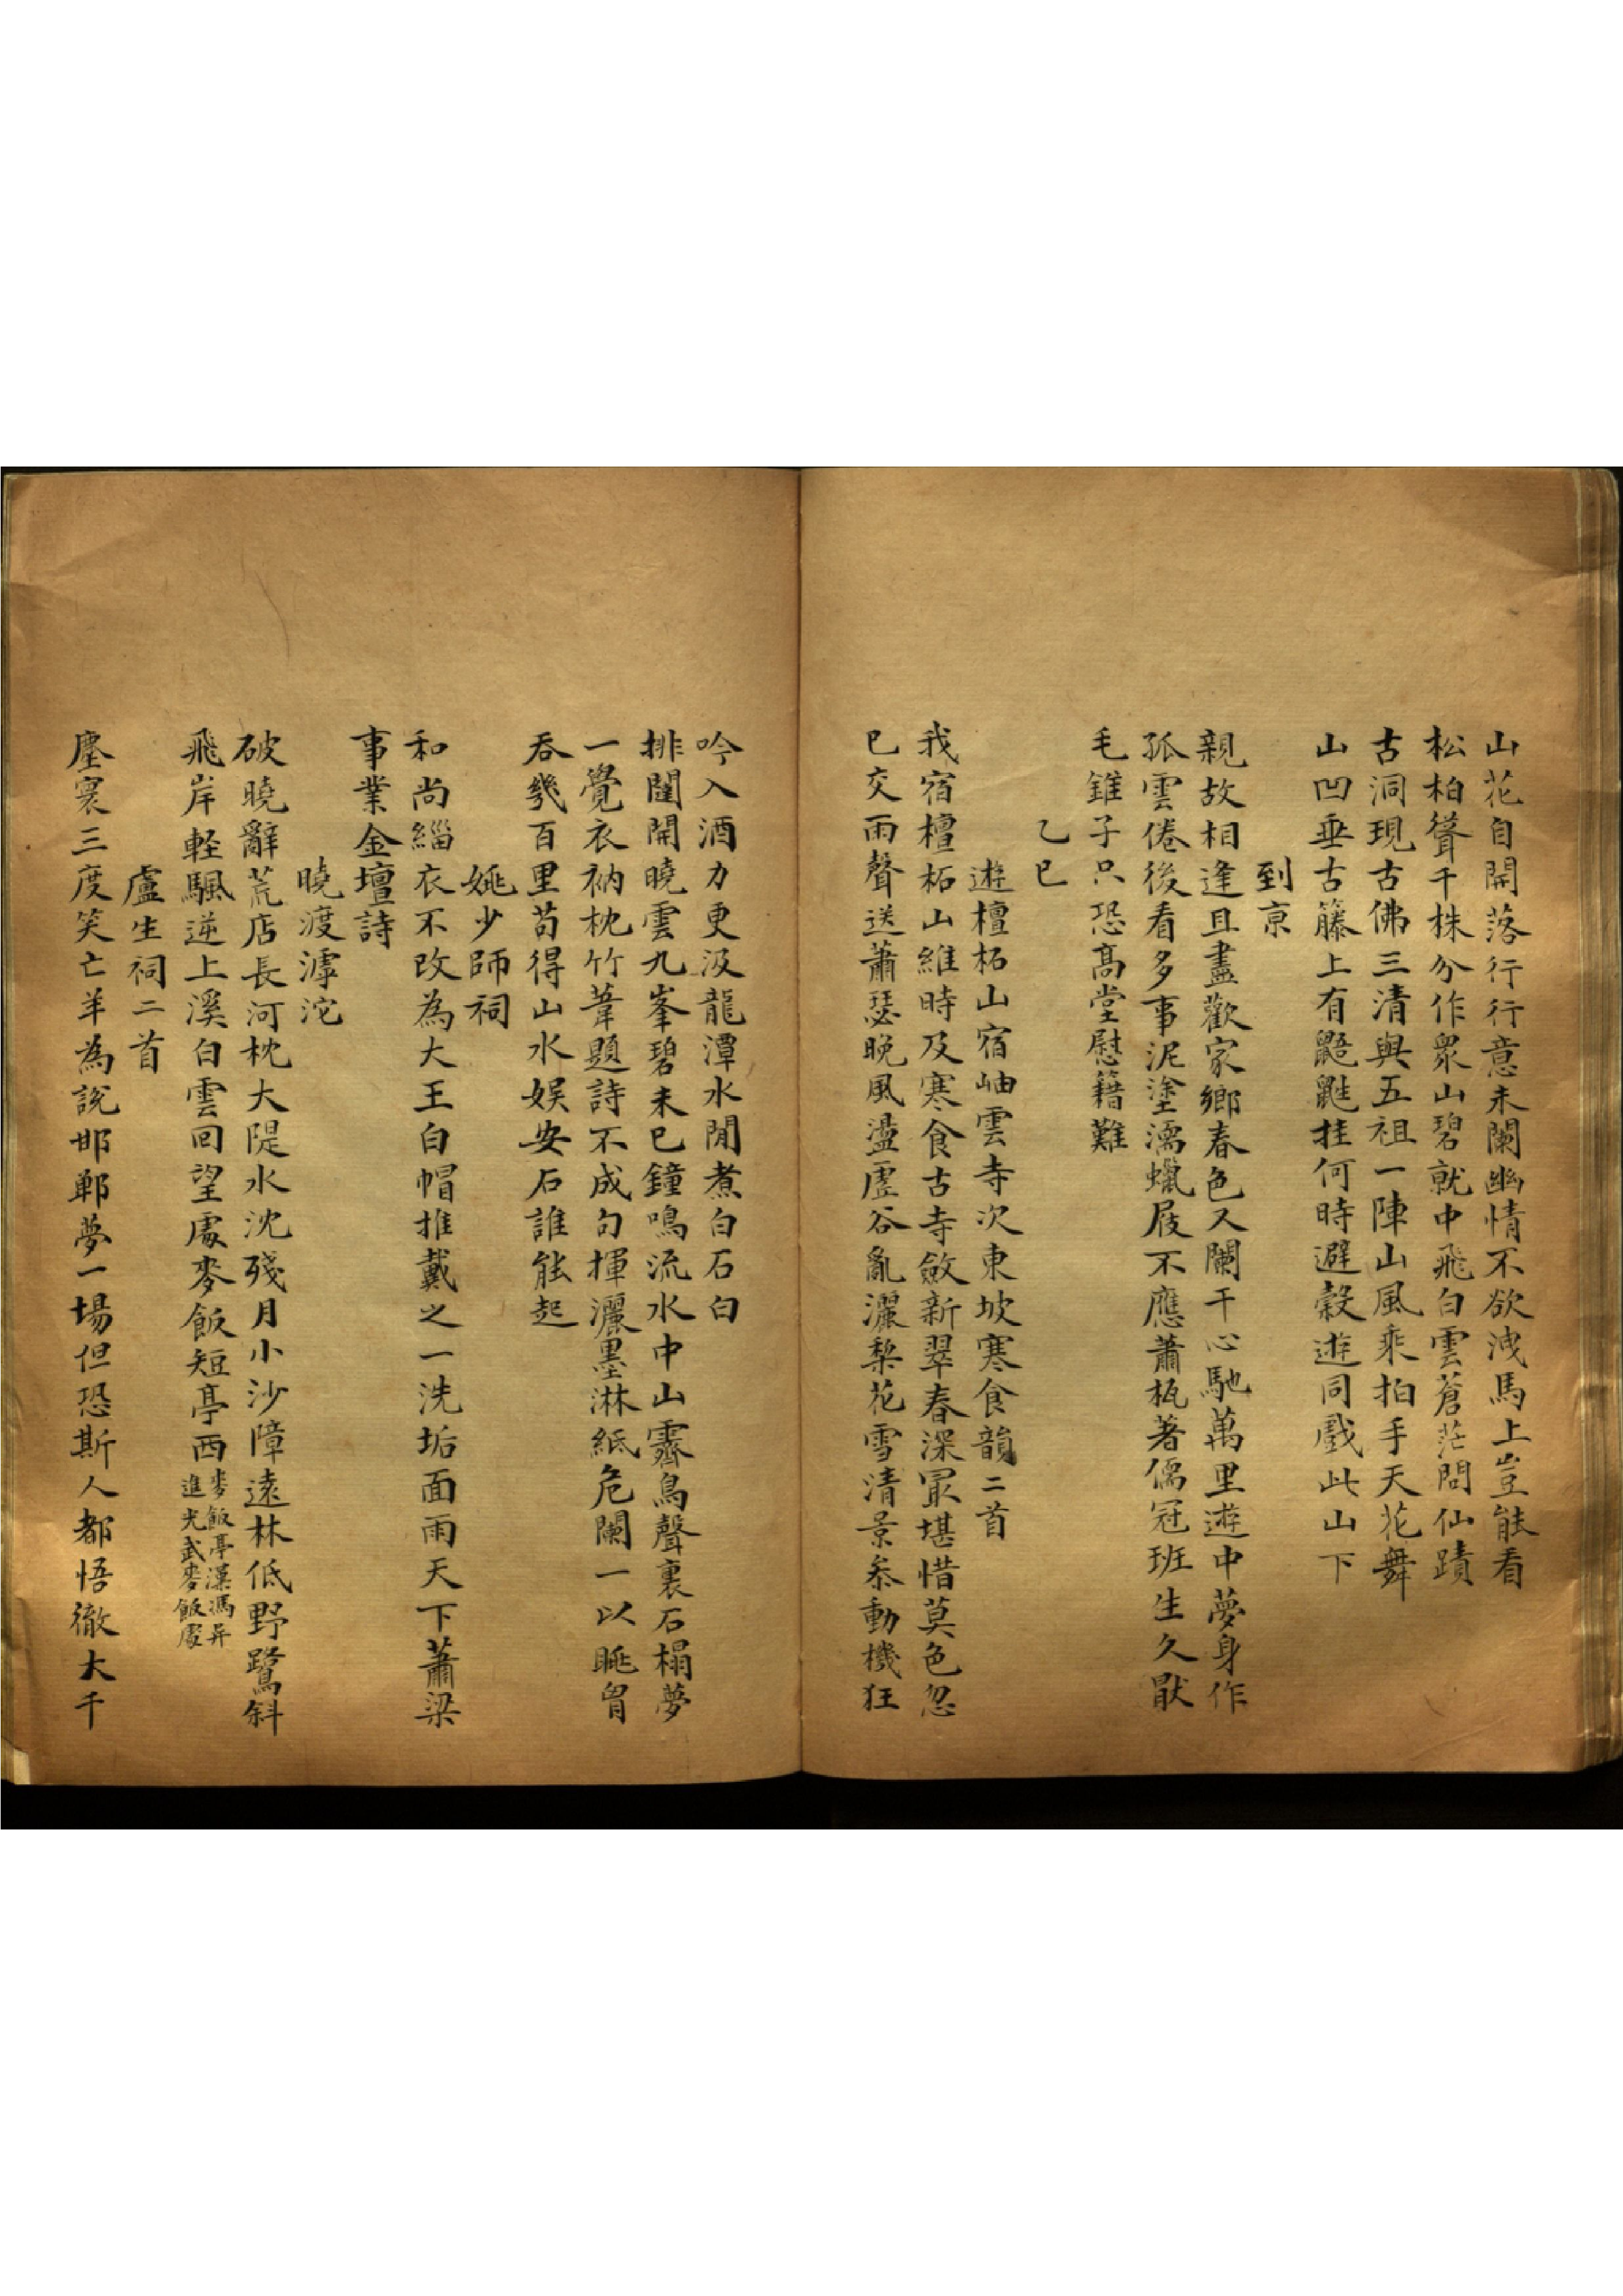 山花自開落行行意未闌幽情不欲洩馬上豈能看
松柏聳千株分作眾山碧就中飛白雲蒼茫問仙蹟
古洞現古佛三清與五祖一陣山風乘拍手天花舞
山凹垂古籐上有鼯鼪挂何時避穀遊同戲此山下
到京
親故相逢且盡歡家鄉春色又闌干心馳萬里遊中夢身作
孤雲倦後看多事泥塗濡蠟屐不應蕭瓶著儒冠班生久厭
毛錐子只恐高堂慰籍難
乙巳
遊檀柘山宿岫雲寺次東坡寒食韻二首
我宿檀柘山維時及寒食古寺斂新翠春深最堪惜莫色忽
已交雨聲送蕭瑟晚風盪虛谷亂灑梨花雪清景忝動機狂
吟入酒力更汲龍潭水閒煮白石白
排闥開曉雲九峯碧未已鐘鳴流水中山霽鳥聲裏石榻夢
一覺衣衲枕竹葦題詩不成句揮灑墨淋紙危闌一以眺胷
吞幾百里苟得山水娛安石誰能起
姚少師祠
和尚緇衣不改為大王白帽推戴之一洗垢面雨天下蕭梁
事業金壇詩
曉渡滹沱
破曉辭荒店長河枕大隄水沈殘月小沙障遠林低野鷺斜
飛岸輕颿逆上溪白雲回望處麥飯短亭西麥飯亭漢馮异
進光武麥飯處
盧生祠二首
塵寰三度笑亡羊為說邯鄲夢一場但恐斯人都悟徹大千